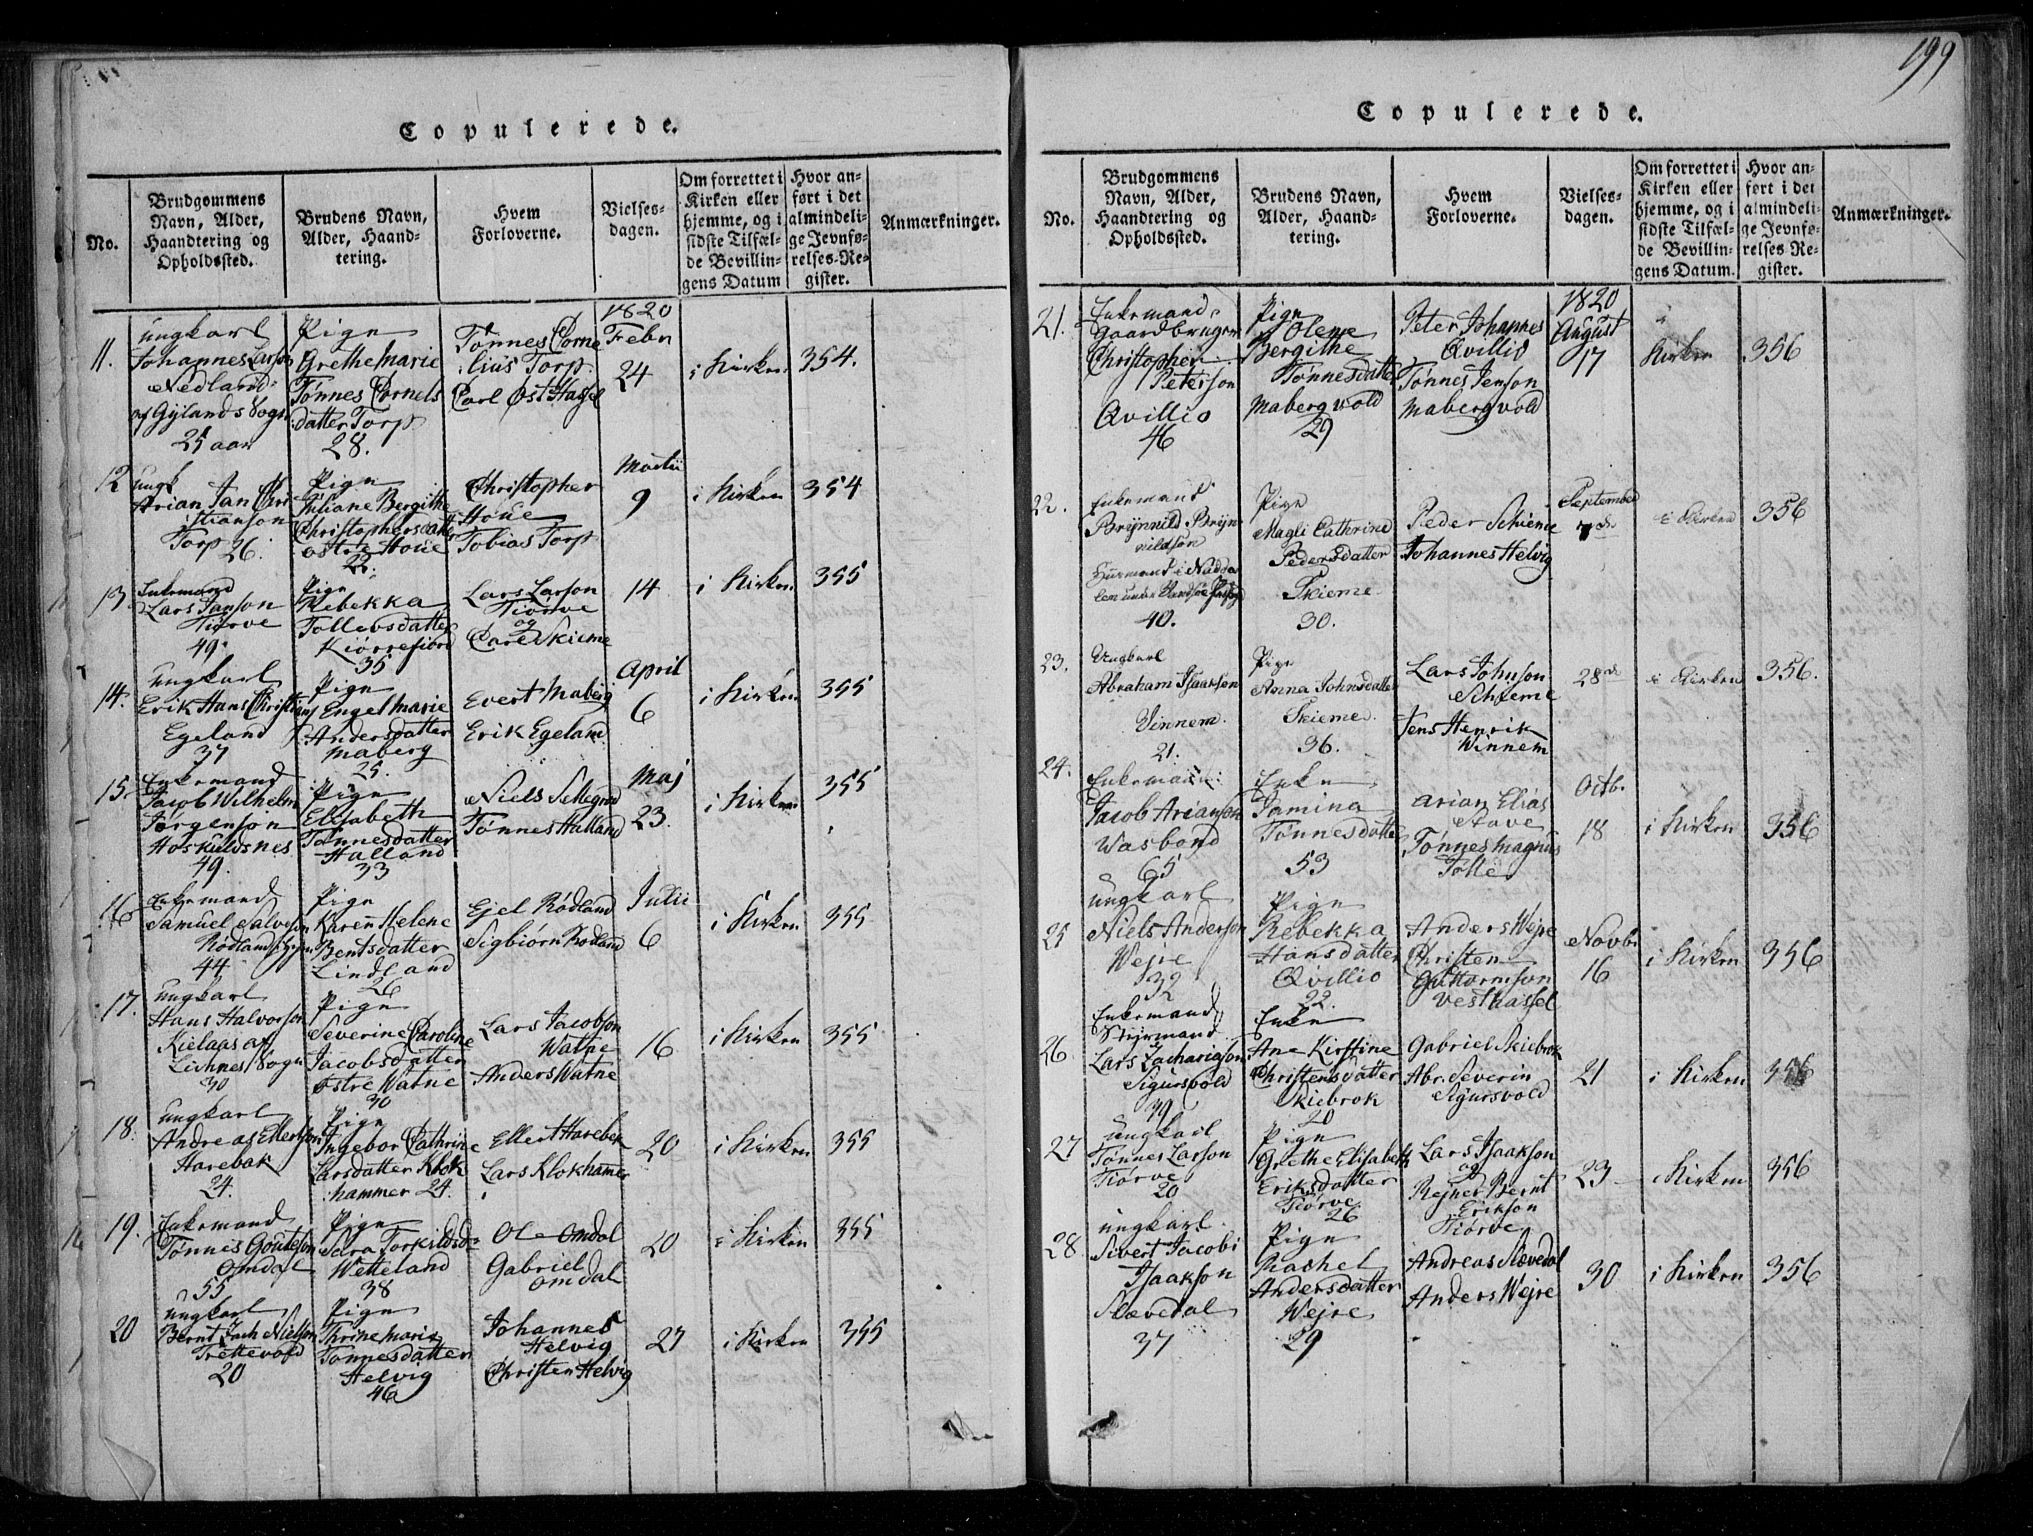 199
Copulerede.
No.
Brudgommens Navn, Alder, Haandtering og Opholdssted.
Brudens Navn, Alder, Haandtering.
Hvem Forloverne.
Vielses-dagen.
Om forrettet i Kirken eller hjemme, og i sidste Tilfælde Bevillingens Datum
Hvor anført i det almindelige Jevnførelses-Register.
Anmærkninger.
1820
11.
ungkarl
Johannes Larson
Nedland
af Gylands Sogn
25 aar
Pige
Grethe Marie
Tønnes Cornels
datter Torp
28.
Tønnes Corne
lius Torp
Carl Øst Hassel
Febr
24
i Kirken
354.
12
ungk
Arian Jan Chri
stianson
Torp 26.
Pige
Juliane Bergithe
Christophersdatter
østre Houe
22.
Christopher
Houe
Tobias Torp
Martii
9
i Kirken
354
13.
Enkemand
Lars Janson
Tiørve
49.
Pige
Rebekka
Tollevsdatter
Kiørrefiord
35
Lars Larson
Tiørve
og
Carl Skieme
14
i Kirken
355
14.
ungkarl
Erik Hans Christians
Egeland
37
Pige
Engel Marie
Andersdatter
Maberg
25.
Evert Maberg
Erik Egeland
April
6
i Kirken
355
15.
Enkemand
Jacob Wilhelm
Jørgenson
Hoskuldsnes
49.
Pige
Elisabeth
Tønnesdatter
Halland
33
Niels Sellegrod
Tønnes Halland
Maj
23.
i Kirken
355
16
Enkemand
Samuel Salveson
Rødland
44
Pige
Karen Helene
Bentsdatter
Lindland
26
Ejel Rødland
Sigbiørn Rødland
Julii
6
i Kirken
355
17.
ungkarl
Hans Halvorson
Kielaas af
Sogn
30
Pige
Severine Caroline
Jacobsdatter
østre Watne
30
Lars Jacobson
Watne
Anders Watne
16
i Kirken
355
18.
ungkarl
Andreas Ellertson
Harebak
24.
Pige
Ingebor Cathrine
Larsdatter Klok
hammer 24.
Ellert Harebek
Lars Klokhamer
20
i Kirken
355
19.
Enkemand
Tønnis Gouteson
Omdal
55
Pige
Sara Torkildsd=
Wetteland
38
Ole Omdal
Gabriel
Omdal
20
i Kirken
355
20
ungkarl
Bernt Zach Nielson
Trættevold
20
Pige
Thrine Marie
Tønnesdatter
Helvig
46
Johannes
Helvig
Christen Helvig
27
i Kirken
355
Copulerede.
No.
Brudgommens Navn, Alder, Haandtering og Opholdssted.
Brudens Navn, Alder, Haandtering.
Hvem Forloverne.
Vielses-dagen.
Om forrettet i Kirken eller hjemme, og i sidste Tilfælde Bevillingens Datum.
Hvor anført i det almindelige Jevnførelses-Register.
Anmærkninger.
1820
21.
Enkemand
Gaardbruger
Christopher
Peterson
Qvillio
46
Pige
Olene
Bergithe
Tønnesdatter
Mabergvold
29
Peter Johannes
Qvillio
Tønnes Jenson
Mabergvold
August
17
Kirken
356
22.
Enkemand
Brynnild Bryn
nildson
Huusmand i
40.
Pige
Magli Cathrine
Pedersdatter
Skieme
30.
Peder Skieme
Johannes Helvig
September
7de
i Kirken
356
23.
Ungkarl
Abraham Isaakson
Vinnem.
21.
Pige
Anna Johnsdatter
Skieme.
36.
Lars Johnson
Schieme
Jens Henrik
Winnem
28de
i Kirken
356.
24.
Enkemand
Jacob Arianson
Wasbond
65
Enke
Jamina
Tønnesdatter
53
Arian Elias
Stave
Tønnes Magnus
Totte
Octb.
18
i Kirken
356
25
ungkarl
Niels Anderson
Wejre
32
Pige
Rebekka
Hansdatter
Qvillio
22.
Anders Wejre
Christen
Guttormson
Vesthassel
Novbr
16
i Kirken
356
26
Enkemand
Styrmand
Lars Zachariason
Sigursvold
39
Enke
Ane Kirstine
Christensdatter
Skiebrok
20
Gabriel Skiebrok
Abr. Severin
Sigursvold
21
i Kirken
356
27
ungkarl
Tønnes Larson
Tiørve
20
Pige
Grethe Elisabeth
Eriksdatter
Tiørve
26
Lars Isaakson
og
Rejner Bernt
Erikson
Tiørve
23
i Kirken
356
28
ungkarl.
Sivert Jacobi
Isaakson
Slævedal
37
Pige
Rachel
Andersdatter
Wejre
29
Andreas Slævedal
Anders Wejre
30
i Kirken
356